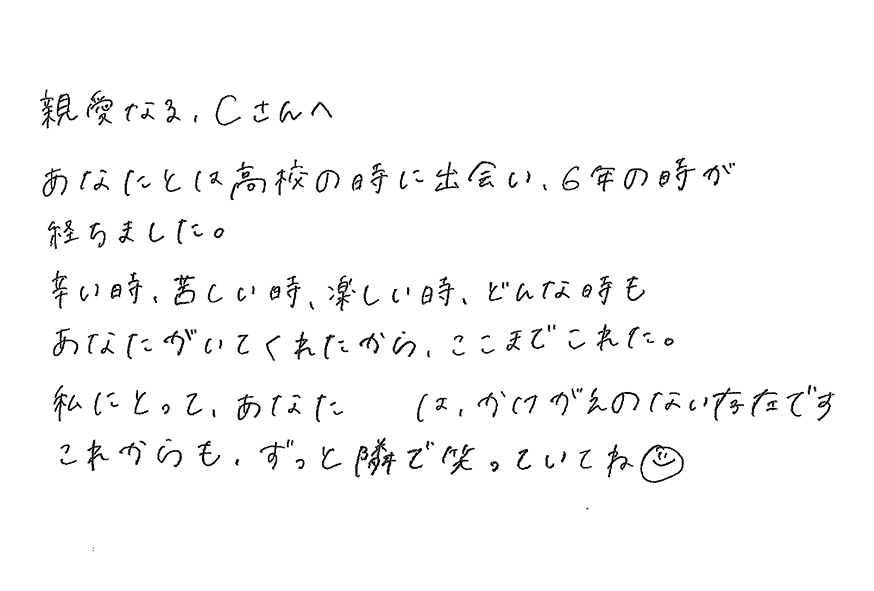 親愛なる、Cさんへ
あなたとは高校の時に出会い、6年の時が
経ちました。
辛い時、苦しい時、楽しい時、どんな時も
あなたがいてくれたから、ここまでこれた。
私にとって、あなた は、かけがえのない存在です
これからも、ずっと隣で笑っていてね